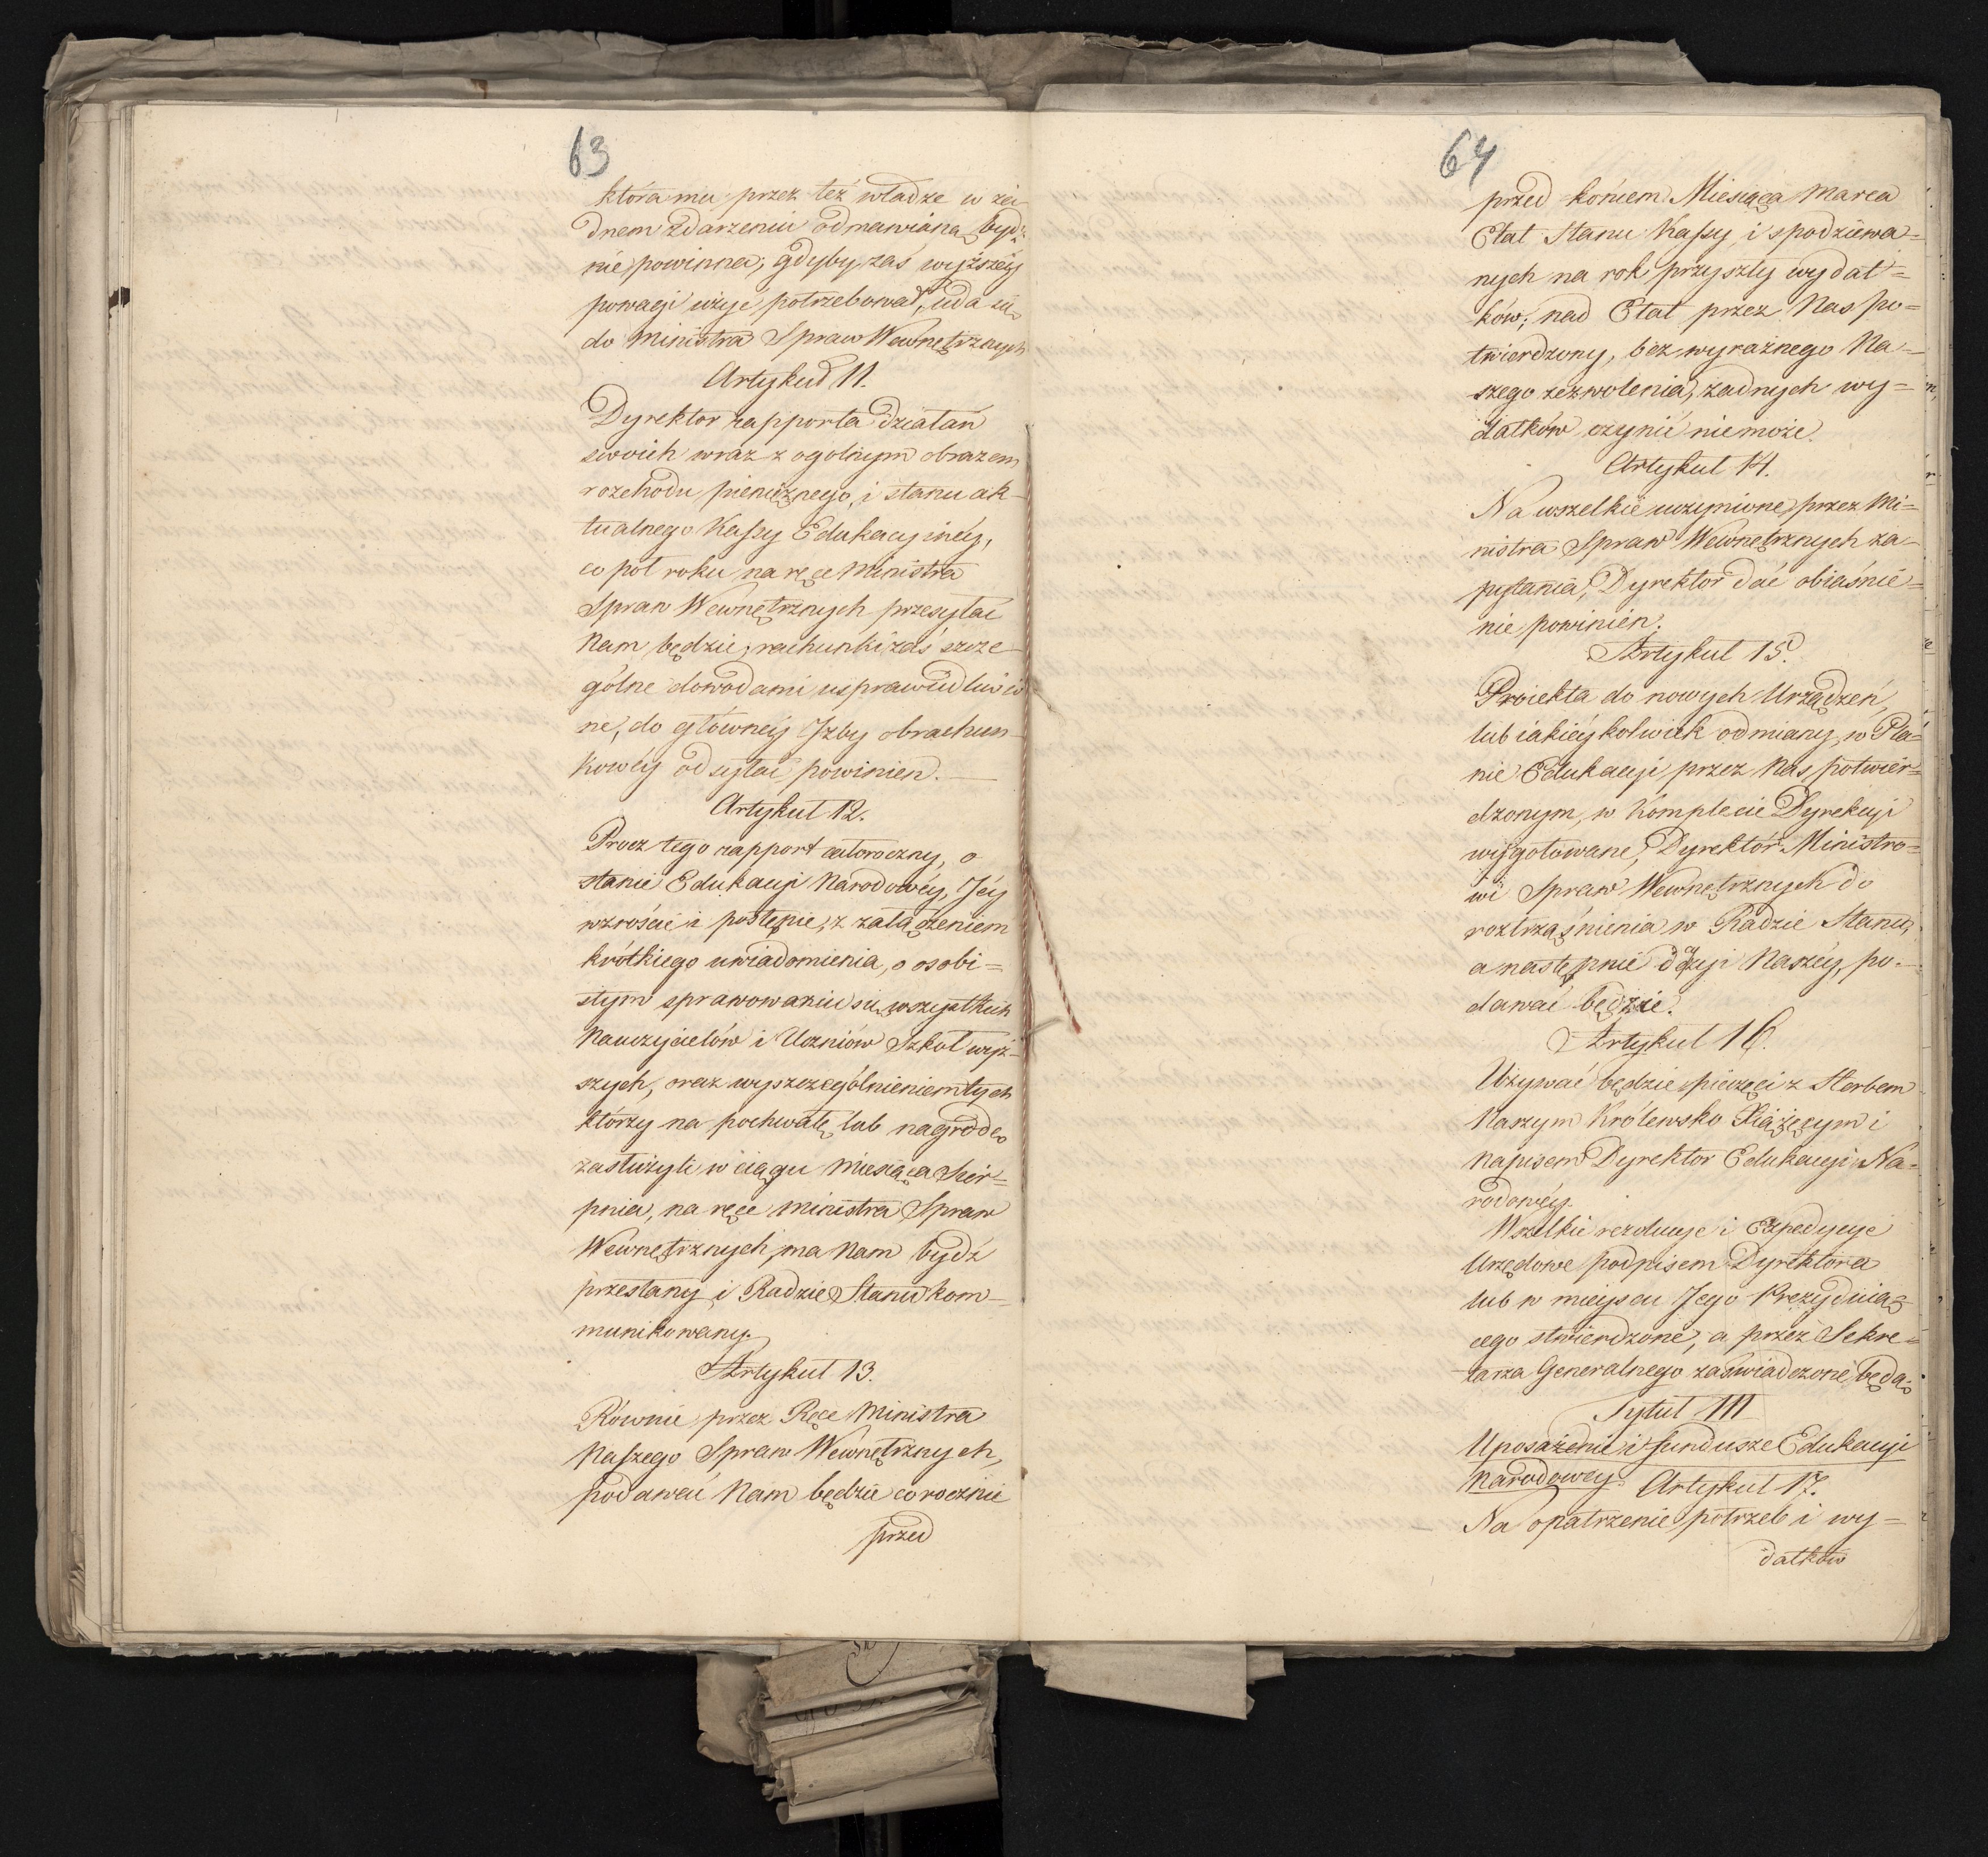 63
która mu przez też władze w ża-
dnem zdarzeniu odmawiana bydź
nie powinna; gdyby zas wyższéy
powagi użyć potrzebował, uda się
do Ministra Spraw Wewnętrznych
Artykuł 11.
Dyrektor rapporta działań
swoich wraz z ogolnym obrazem
rozchodu pieniężnego, i stanu ak-
tualnego Kassy Edukacyinéy,
co poł roku na ręce Ministra
Spraw Wewnętrznych przesyłać
Nam będzie; rachunki zaś szcze-
gólne dowodami usprawiedliwio
ne, do główney Jzby obrachun-
kowéy odsyłać powinien.
Artykuł 12.
Procz tego rapport całoroczny, o
stanie Edukacyi Narodowéy, Jéy
wzroście i postępie, z załączeniem
krótkiego uwiadomienia, o osobi=
stym sprawowaniu się wszystkich
Nauczycielów i Uczniów Szkoł wyż-
szych, oraz wyszczególnieniem tych
którzy na pochwałę lub nagrodę
zasłużyli w ciągu Miesiąca Sier=
pnia, na ręce Ministra Spraw
Wewnętrznych, ma Nam bydź
przesłany i Radzie Stanu kom-
munikowany.
Artykuł 13.
Równie przez Ręce Ministra
Naszego Spraw Wewnętrznych,
podawać Nam będzie corocznie
przed
64
przed końcem Miesiąca Marca
Etat Stanu Kassy, i spodziewa=
nych na rok przyszły wydat=
ków; nad Etat przez Nas po=
twierdzony, bez wyraźnego Na=
szego zezwolenia, żadnych wy=
datków czynić nie może.
Artykuł 14.
Na wszelkie uczynione przez Mi=
nistra Spraw Wewnętrznych za-
pytania, Dyrektor dać obiaśnie=
nie powinien.
Artykuł 15.
Proiekta do nowych Urządzeń,
lub iakiéykolwiek odmiany, w Pla=
nie Edukacyi przez Nas potwier=
dzonym, w Komplecie Dyrekcyi
wygotowane, Dyrektór Ministro=
wi Spraw Wewnętrznych do
roztrząśnienia w Radzie Stanu,
a następnie decyzyi Naszéy, po-
dawać będzie.
Artykuł 16.
Używać będzie pieczęci z Herbem
Naszym Królewsko Xiążęcym i
Napisem Dyrektor Edukacyi Na=
rodowéy.
Wszelkie rezolucye i Expedycye
Urzędowe podpisem Dyrektora
lub w mieyscu Jego Prezyduią=
cego stwierdzone, a przez Sekre=
tarza Generalnego zaświadczone będą.
Tytuł III
Uposażenie i fundusze Edukacyi
Narodowey. Artykuł 17.
Na opatrzenie potrzeb i wy=
datków